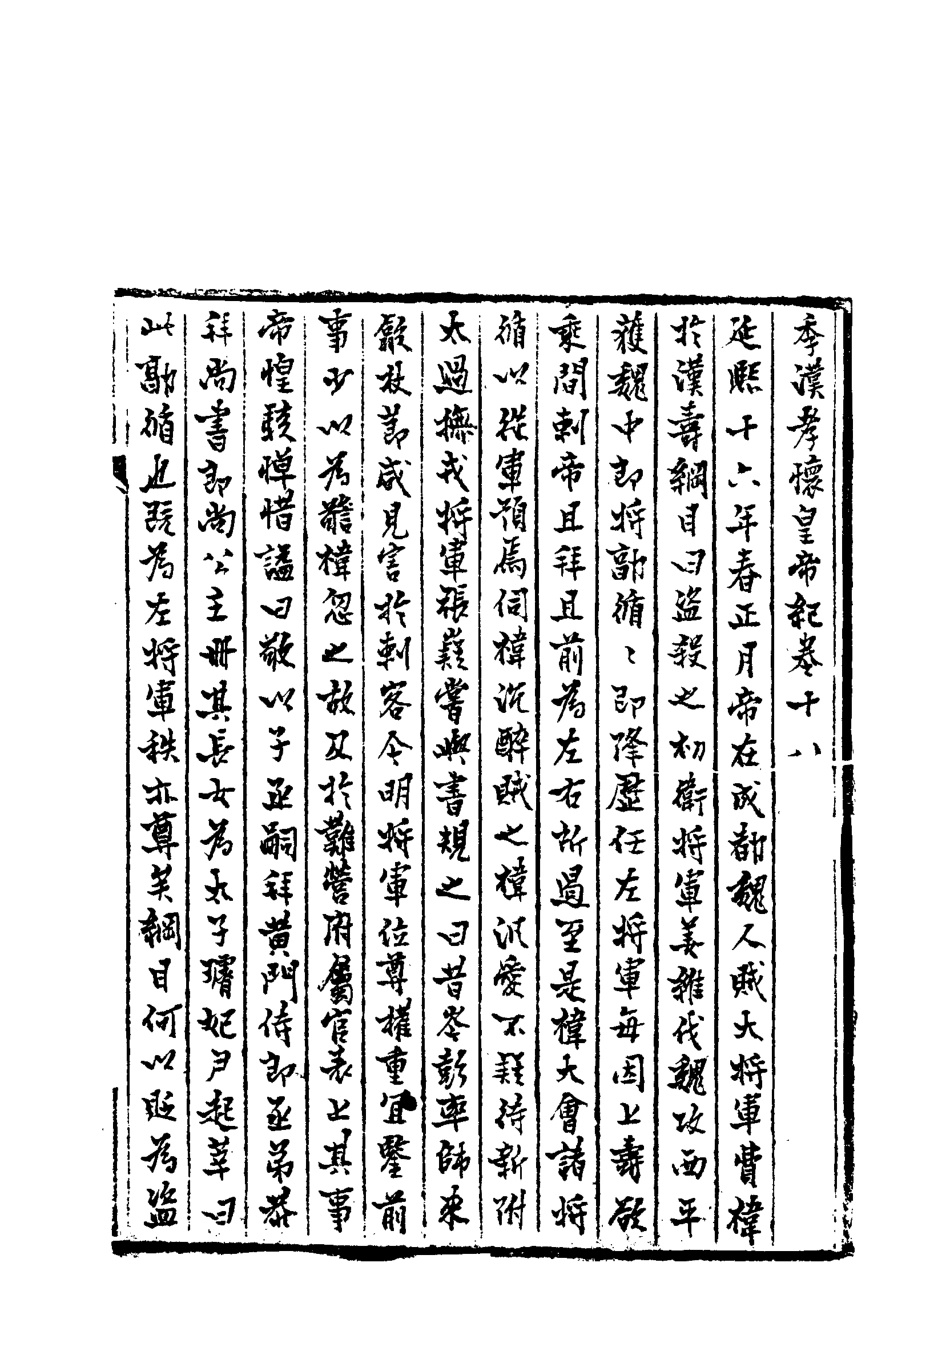 季漢孝懷皇帝紀卷十八
延熙十六年春正月帝在成都魏人賊大將軍費禕
於漢壽綱目曰盜殺之初衛將軍姜維伐魏攻西平
獲魏中郎將郭循〻即降歷任左將軍每因上壽欲
乘間刺帝且拜且前為左右所遏至是禕大會諸將
循以從軍預焉伺禕沉醉賊之禕汎愛不疑待新附
太過撫戎將軍張嶷嘗與書規之曰昔岑彭率師來
歙杖節咸見害於刺客今明將軍位尊權重宜鑒前
事少以為警禕忽之故及於難營府屬官表上其事
帝惶駭悼惜諡曰敬以子丞嗣拜黃門侍郎丞弟恭
拜尚書郎尚公主冊其長女為太子璿妃尹起莘曰
此郭循也既為左將軍秩亦尊矣綱目何以貶為盜